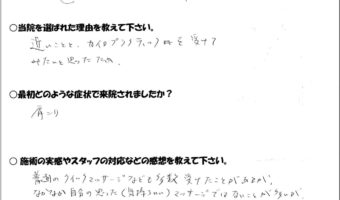 ○当院を選ばれた理由を教えて下さい。
近いことと、カイロプラクティックを受けて
みたいと思ったため。
○最初どのような症状で来院されましたか？
肩こり
○施術の実感やスタッフの対応などの感想を教えて下さい。
クイックマッサージなども多数受けたことがあるが、
なかなか自分の思った(気持ちいい)マッサージではないことが多いが